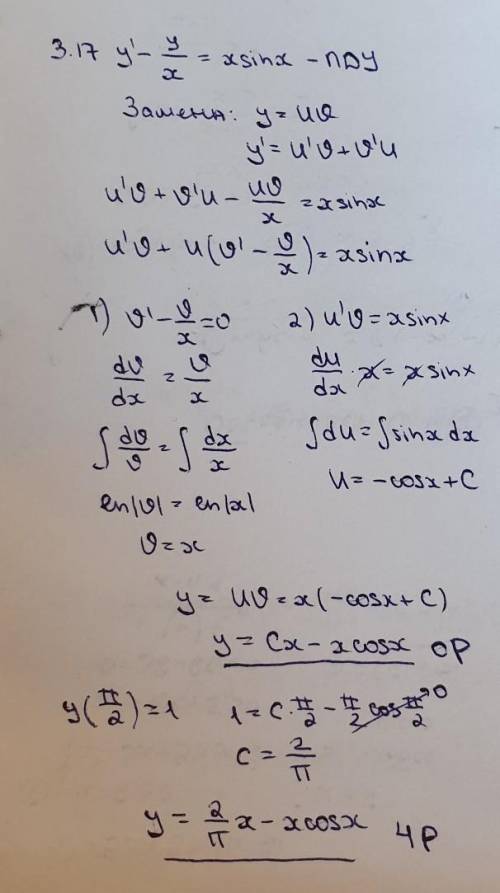 3.17 y' - y/x = x sinx - ЛДУ
Замена: y = uϑ
y' = u'ϑ + ϑ'u
u'ϑ + ϑ'u - uϑ/x = x sinx
u'ϑ + u(ϑ' - ϑ/x) = x sinx
1) ϑ' - ϑ/x = 0
dϑ/dx = ϑ/x
∫ dϑ/ϑ = ∫ dx/x
ln|ϑ| = ln|x|
ϑ = x
2) u'ϑ = x sinx
du/dx · x = x sinx
∫du = ∫sinx dx
u = -cosx + C
y = uϑ = x(-cosx + C)
y = Cx - x cosx ОР
y(π/2) = 1
1 = C · π/2 - π/2 cos π/2 → 0
C = 2/π
y = 2/π x - x cosx ЧР